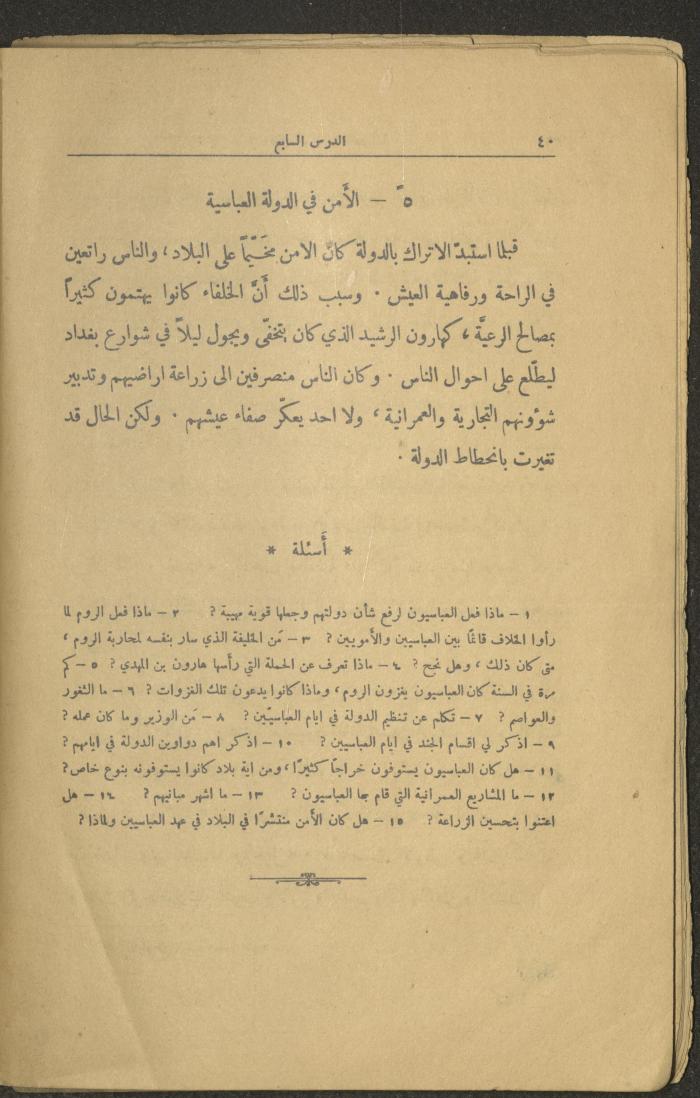 ٤٠ الدرس السابع
٥ً – الأَمن في الدولة العباسية
قبلما استبدّ الاتراك بالدولة كانَ الامن مخَيّماً على البلاد ، والناس راتعين
في الراحة ورفاهية العيش . وسبب ذلك أَنَّ الخلفاء كانوا يهتمون كثيراً
بمصالح الرعيَّة ، كهارون الرشيد الذي كان يتخفّى ويجول ليلاً في شوارع بغداد
ليطّلع على احوال الناس . وكان الناس منصرفين الى زراعة اراضيهم وتدبير
شوؤنهم التجارية والعمرانية ، ولا احد يعكّر صفاء عيشهم . ولكن الحال قد
تغيرت بانحطاط الدولة .
* أَسئلة *
١ – ماذا فعل العباسيون لرفع شأن دولتهم وجعلها قوية مهيبة ؟ ٢ – ماذا فعل الروم لما
رأوا الخلاف قائمًا بين العباسيين والأمويين ؟ ٣ – مَن الخليفة الذي سار بنفسه لمحاربة الروم ،
متى كان ذلك ، وهل نجح ؟ ٤ – ماذا تعرف عن الحملة التي رأسها هارون بن المهدي ؟ ٥ – كم
مرة في السنة كان العباسيون يغزون الروم ، وماذا كانوا يدعون تلك الغزوات ؟ ٦ – ما الثغور
والعواصم ؟ ٧ – تكلم عن تنظيم الدولة في ايام العباسيّين ؟ ٨ – مَن الوزير وما كان عمله ؟
٩ – اذكر لي اقسام الجند في ايام العباسيين ؟ ١٠ – اذكر اهم دواوين الدولة في ايامهم ؟
١١ – هل كان العباسيون يستوفون خراجاً كثيرًا ، ومن اية بلاد كانوا يستوفونه بنوع خاص ؟
١٢ – ما المشاريع العمرانية التي قام بها العباسيون ؟ ١٣ – ما اشهر مبانيهم ؟ ١٤ – هل
اعتنوا بتحسين الزراعة ؟ ١٥ – هل كان الأمن منتشرًا في البلاد في عهد العباسيين ولماذا ؟